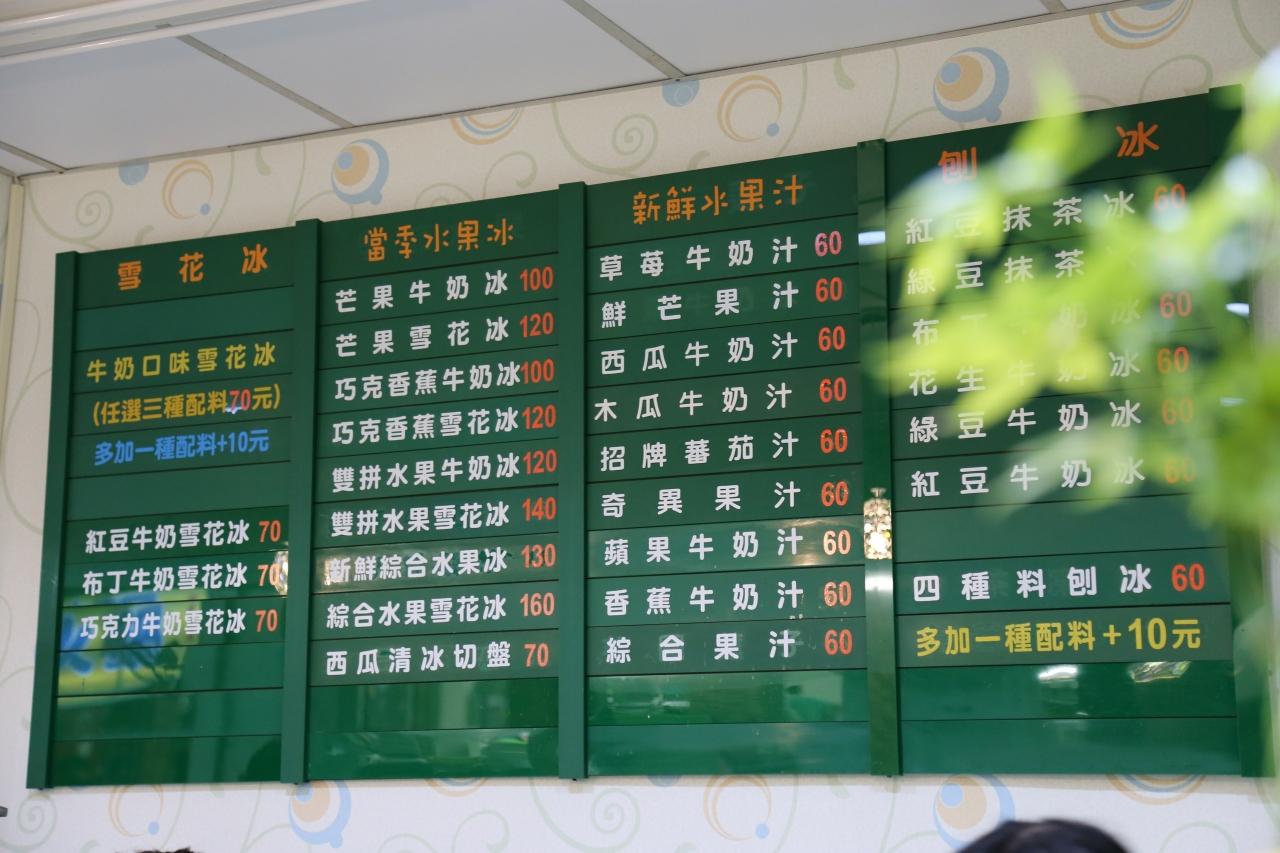 雪花冰
牛奶口味雪花冰
(任選三種配料70元)
多加一種配料+10元
紅豆牛奶雪花冰 70
布丁牛奶雪花冰 70
巧克力牛奶雪花冰 70
當季水果冰
芒果牛奶冰 100
芒果雪花冰 120
巧克香蕉牛奶冰 100
巧克香蕉雪花冰 120
雙拼水果牛奶冰 120
雙拼水果雪花冰 140
新鮮綜合水果冰 130
綜合水果雪花冰 160
西瓜清冰切盤 70
新鮮水果汁
草莓牛奶汁 60
鮮芒果汁 60
西瓜牛奶汁 60
木瓜牛奶汁 60
招牌蕃茄汁 60
奇異果汁 60
蘋果牛奶汁 60
香蕉牛奶汁 60
綜合果汁 60
刨冰
紅豆抹茶冰 60
綠豆抹茶
布 冰 60
花生牛奶冰 60
綠豆牛奶冰 60
紅豆牛奶冰 60
四種料刨冰 60
多加一種配料+10元